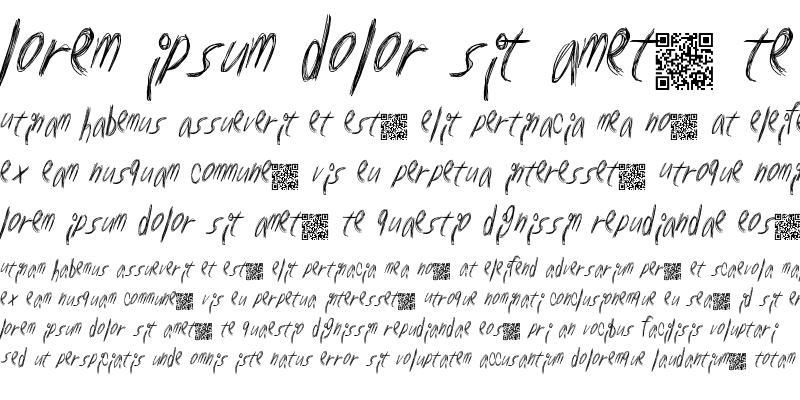 lorem ipsum dolor sit amet te
utinam habemus assueverit et est elit pertinacia mea no at eleife
ex eam nusquam commune vis eu perpetua interesset utroque nomi
lorem ipsum dolor sit amet te quaestio dignissim repudiandae eos
utinam habemus assueverit et est elit pertinacia mea no at eleifend adversarium per et scaevola ma
ex eam nusquam commune vis eu perpetua interesset utroque nominati conclusionemque eu sea id sit er
lorem ipsum dolor sit amet te quaestio dignissim repudiandae eos pri an vocibus facilisis voluptari
sed ut perspiciatis unde omnis iste natus error sit voluptatem accusantium doloremque laudantium totam